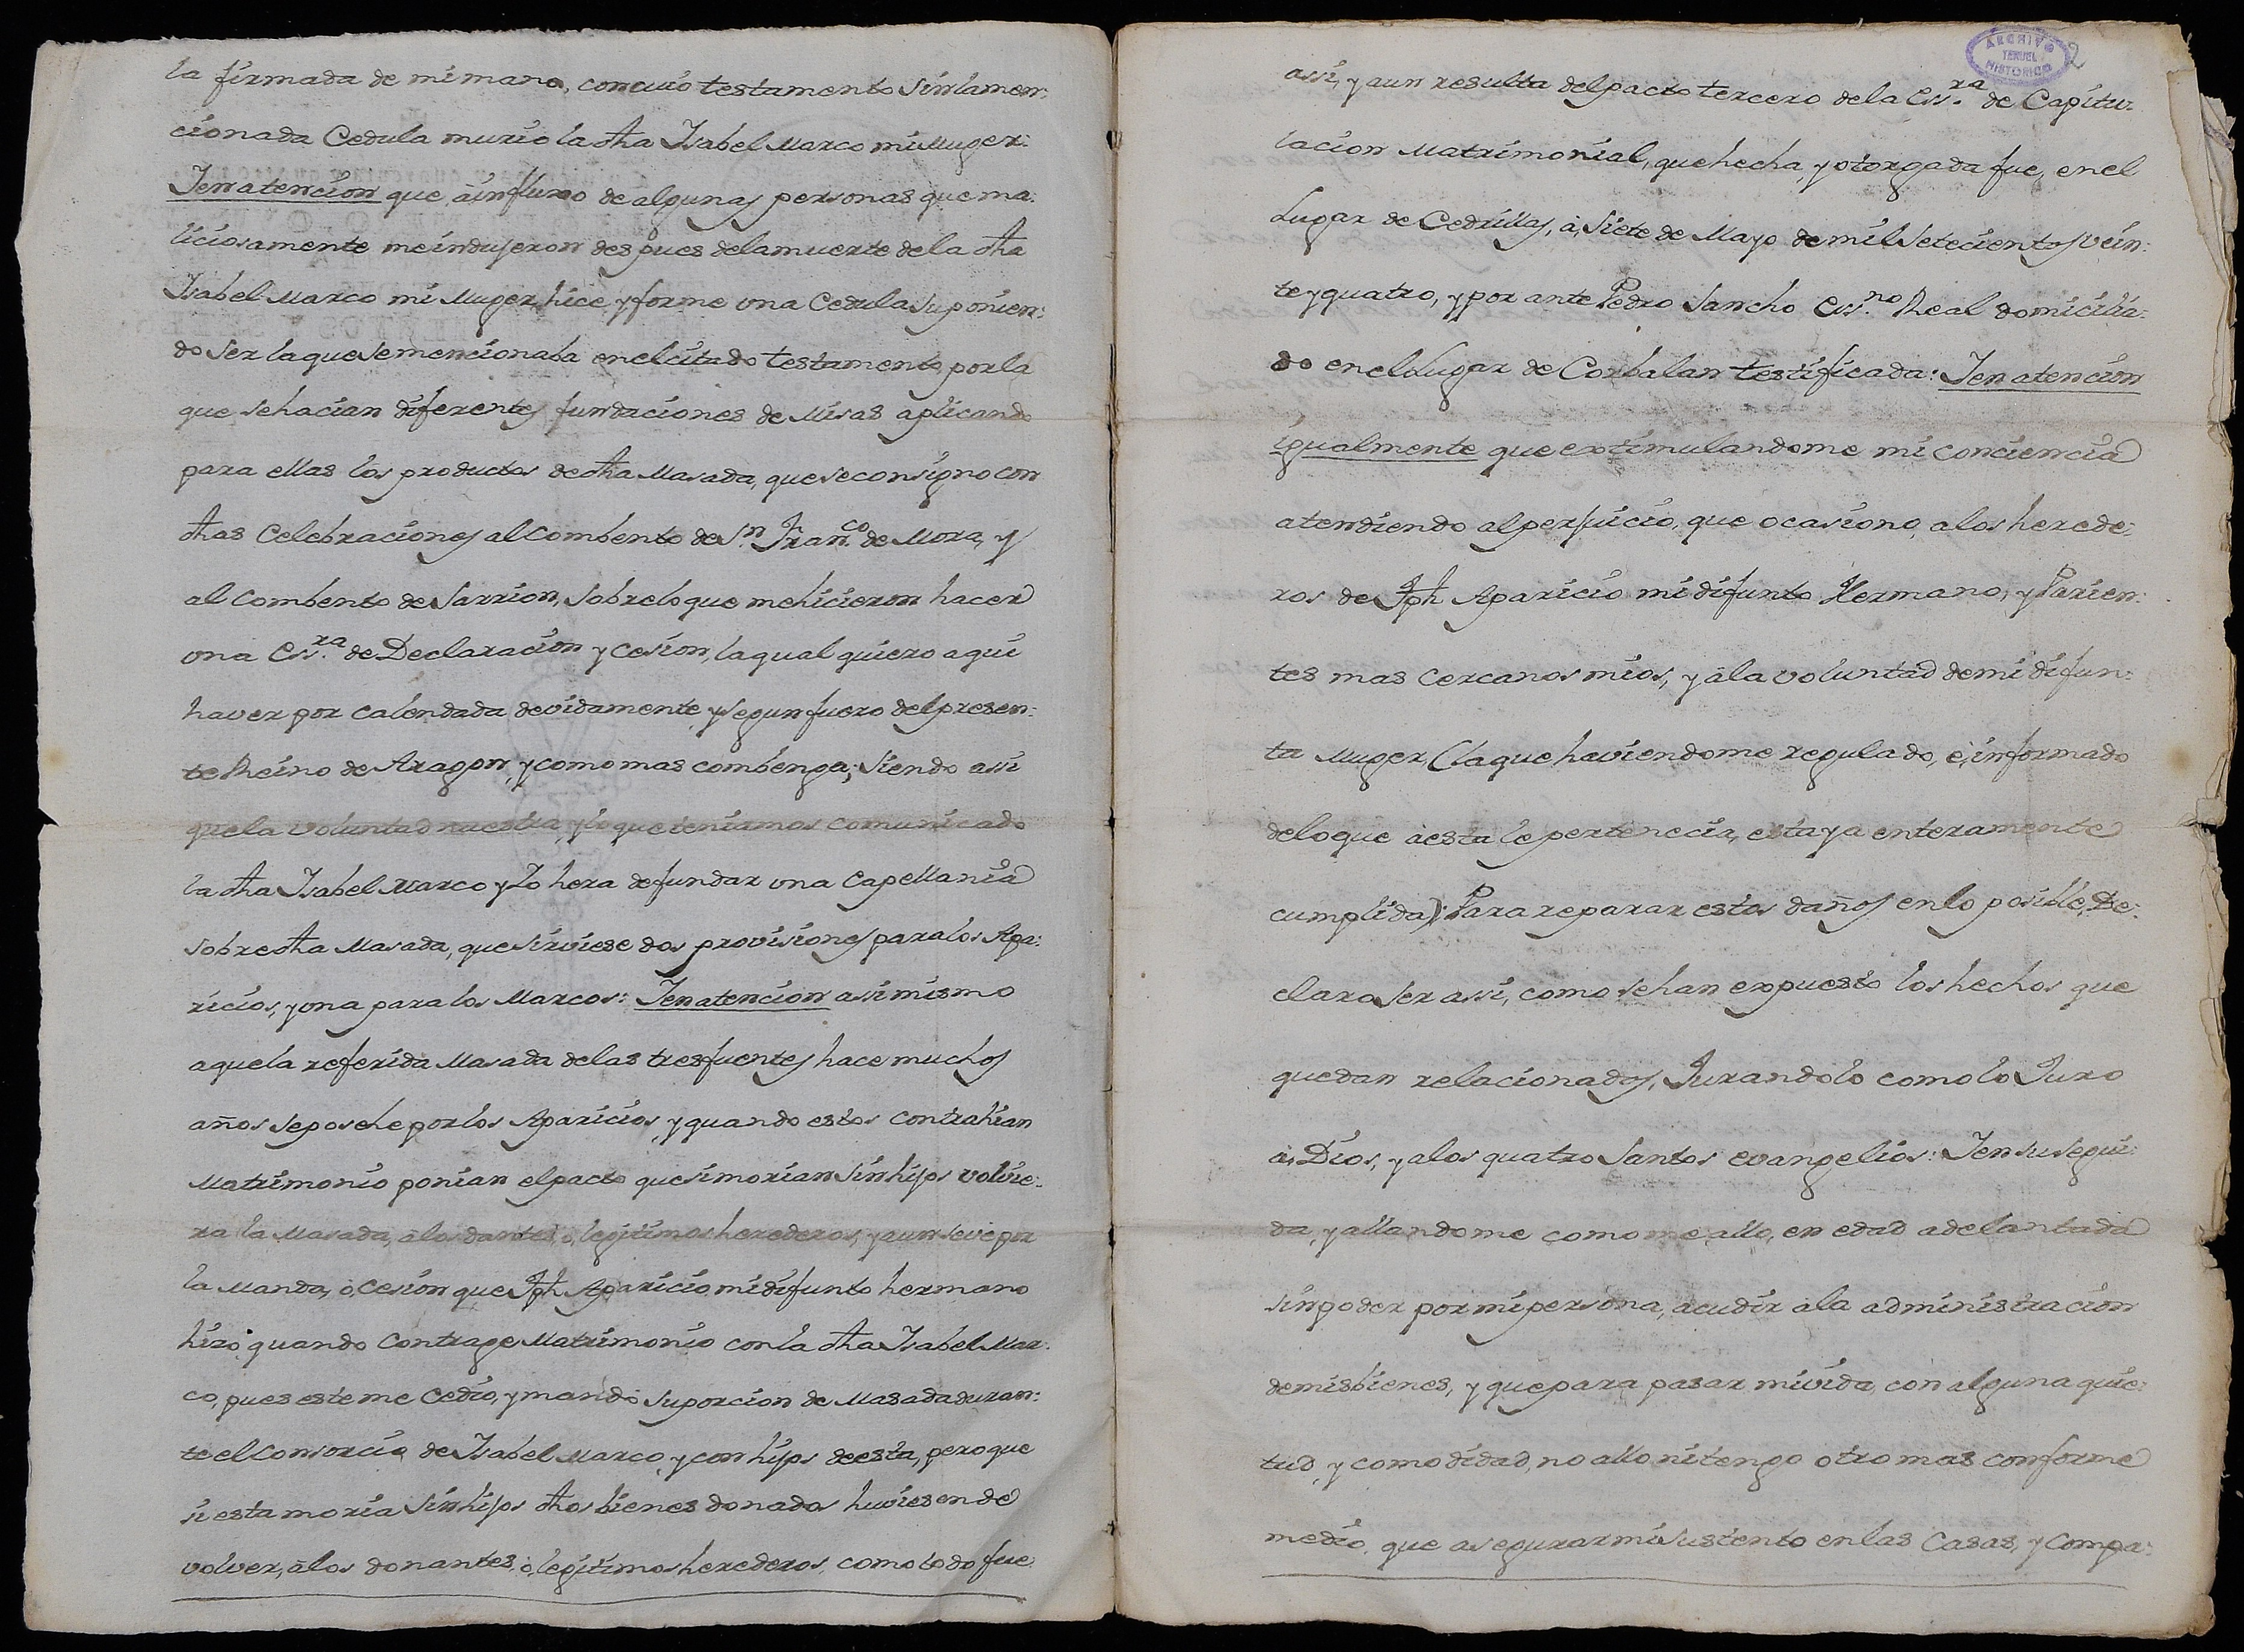 la firmada de mi mano, con cuio testamento sin la men:
cionada Cedula murio la dha Isabel Marco mi Muger:
Ien atencion que à influxo de algunas personas que ma:
liciosamente me indujeron despues de la muerte de la dha
Isabel Marco mi Muger hice, y forme una Cedula suponien:
do ser la que se mencionaba en el citado testamento, por la
que se hacian diferentes fundaciones de Misas aplicando
para ellas los productos de dha Masada, que se consigno con
dhas Celebraciones al Combento de Sn. Franco. de Mora, y
al Combento de Sarrion, sobre lo que me hicieron hacer
una Essra. de Declaracion y Cesion, la qual quiero aqui
haver por calendada devidamente, y segun fuero del presen:
te Reino de Aragon, y como mas combenga; siendo assi
que la voluntad nuestra, y lo que teniamos comunicado
la dha Isabel Marco y Yo hera de fundar una Capellania
sobre dha Masada, que sirviese dos provisiones para los Apa:
ricios, y una para los Marcos: Ien atencion assi mismo
a que la referida Masada de las tres fuentes hace muchos
años se posehe por los Aparicios, y quando estos contrahian
Matrimonio ponian el pacto que si morian sin hijos volvie:
ra la Masada, à los dantes, ò, legitimos herederos, y aun se vè por
la Manda, ò, Cesion que Jph Aparicio mi difunto hermano
hizo quando Contrage Matrimonio con la dha Isabel Mar:
co, pues este me Cedio, y mandò su porcion de Masada duran:
te el Consorcio de Isabel Marco, y con hijos de esta, pero que
si esta moria sin hijos dhos bienes donados huviesen de
volver, à los donantes, ò, legitimos herederos, como todo fue
ARCHIVO
TERUEL
HISTORICO
2
assi, y aun resulta del pacto tercero de la Essra. de Capitu:
lacion Matrimonial, que hecha, y otorgada fue, en el
Lugar de Cedrillas, à, siete de Mayo de mil setecientos vein:
te y quatro, y por ante Pedro Sancho Essno. Real domicilia:
do en el Lugar de Corbalan testificada: Ien atencion
igualmente que extimulandome mi conciencia
atendiendo al perjuicio, que ocasiono, a los herede:
ros de Jph Aparicio mi difunto Hermano, y Parien:
tes mas cercanos mios, y à la voluntad de mi difun:
ta Muger, (la que haviendome regulado, è, informado
de lo que à esta le pertenecia, esta ya enteramente
cumplida): Para reparar estos daños en lo posible, De:
claro ser assi, como se han expuesto los hechos que
quedan relacionados, Jurandolo como lo Juro
à, Dios, y a los quatro Santos evangelios: Ien su segui:
da, y allandome como me allo, en edad adelantada
sin poder por mi persona, acudir à la administracion
de mis bienes, y que para pasar mi vida, con alguna quie:
tud, y comodidad, no allo ni tengo otro mas conforme
medio, que asegurar mi sustento en las Casas, y Compa: